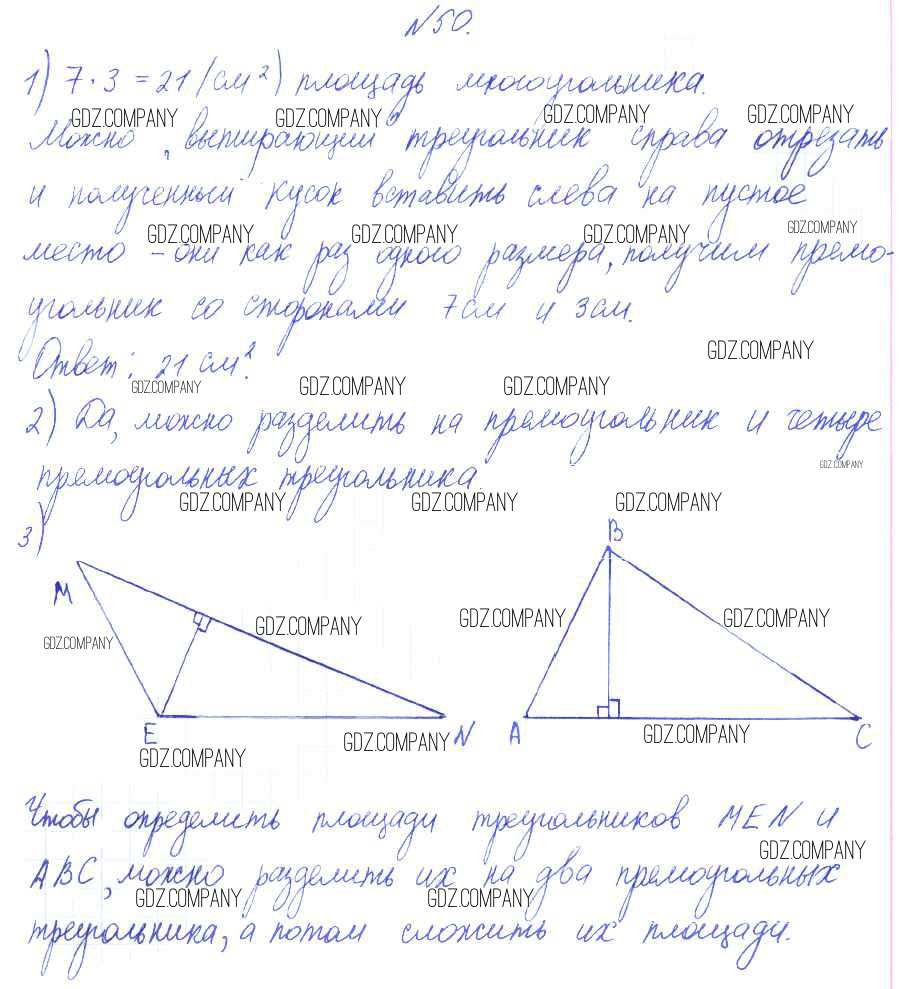 №50.
1) 7·3 = 21 (см²) площадь многоугольника.
GDZ.COMPANY GDZ.COMPANY GDZ.COMPANY GDZ.COMPANY
Можно, выпирающий треугольник справа отрезать
и полученный кусок вставить слева на пустое
GDZ.COMPANY GDZ.COMPANY GDZ.COMPANY GDZ.COMPANY
место – они как раз одного размера, получим прямо-
угольник со сторонами 7см и 3см.
GDZ.COMPANY
Ответ: 21 см².
GDZ.COMPANY GDZ.COMPANY GDZ.COMPANY
2) Да, можно разделить на прямоугольник и четыре
GDZ.COMPANY
прямоугольных треугольника.
GDZ.COMPANY GDZ.COMPANY GDZ.COMPANY
3)
B
M
GDZ.COMPANY GDZ.COMPANY GDZ.COMPANY
GDZ.COMPANY
E N A C
GDZ.COMPANY GDZ.COMPANY GDZ.COMPANY
Чтобы определить площади треугольников MEN и
GDZ.COMPANY
ABC, можно разделить их на два прямоугольных
GDZ.COMPANY GDZ.COMPANY
треугольника, а потом сложить их площади.